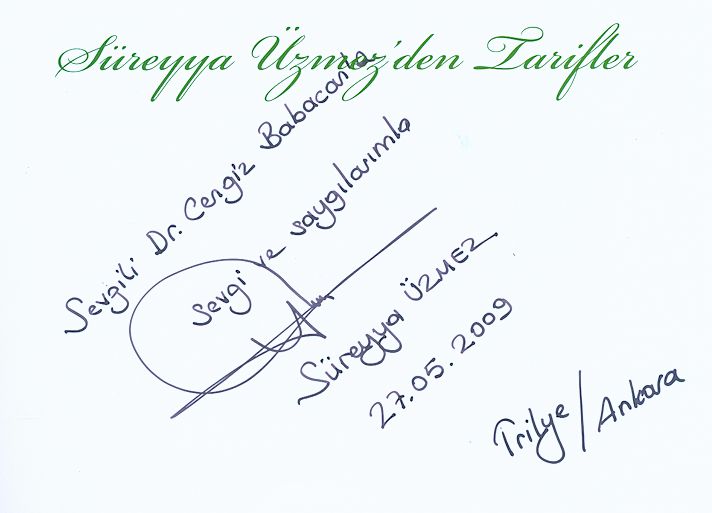 Süreyya Üzmez'den Tarifler
Sevgili Dr. Cengiz Babacan'a
Sevgi ve saygılarımla
Süreyya ÜZMEZ
27.05.2009
Trilye/Ankara